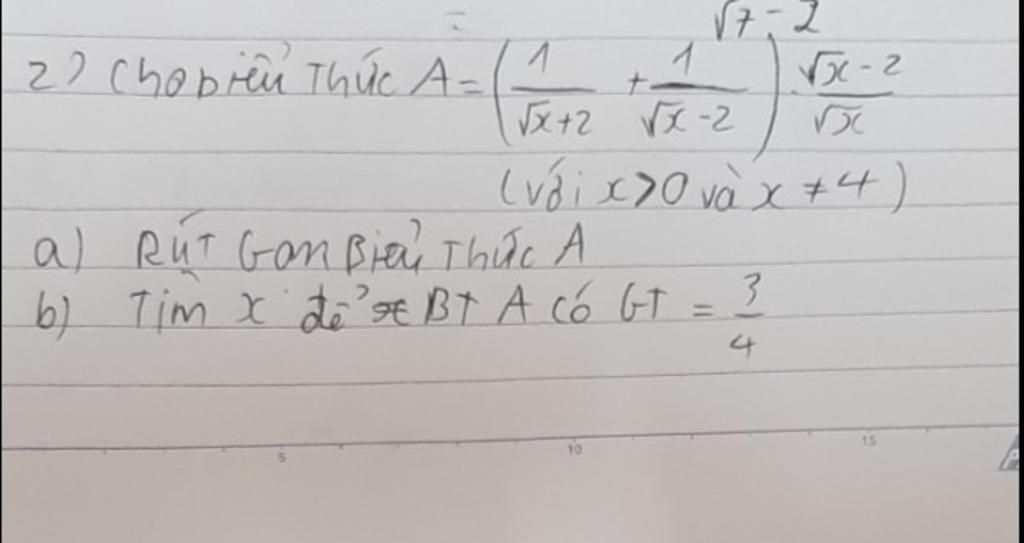 =
√7 - 2
2) Cho biểu Thức A = (1/(√x+2) + 1/(√x-2)) . (√x-2)/√x
(với x>0 và x ≠ 4)
a) RÚT Gọn Biểu Thức A
b) Tìm x để BT A có GT = 3/4
5 10 15